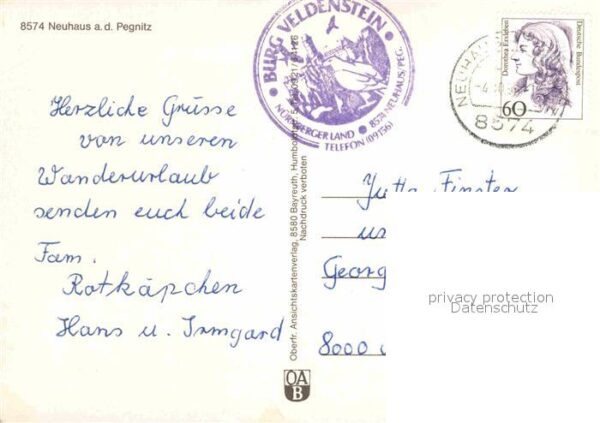 8574 Neuhaus a.d. Pegnitz
Herzliche Grüsse
von unseren
Wanderurlaub
senden euch beide
Fam.
Rotkäpchen
Hans u. Irmgard
BURG VELDENSTEIN
NÜRNBERGER LAND
8574 NEUHAUS/PEG.
TELEFON (09156)
Oberfr. Ansichtskartenverlag, 8580 Bayreuth, Humboldt
Nachdruck verboten
OA
B
Deutsche Bundespost
Dorothea Erxleben
60
NEUHAU
8574
Jutta Finster
Georg
8000
privacy protection
Datenschutz